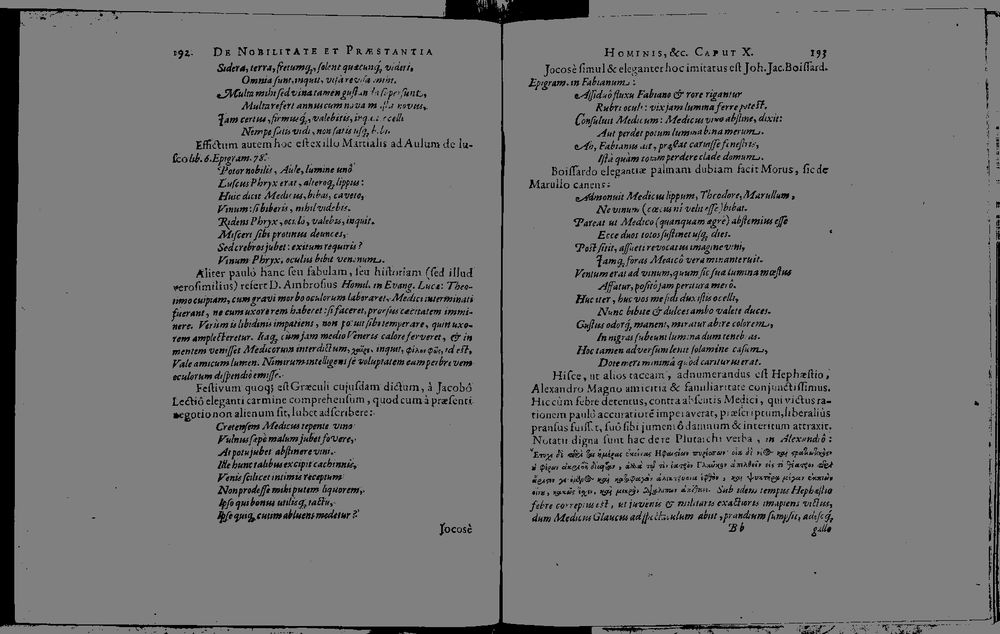 192. DE NOBILITATE ET PRÆSTANTIA
Sidera, terra, fretumq, solent quæcunq, videri,
Omnia sunt, inquit, visa revisa mihi.
Multa mihi sed vina tamen gustanda supersunt,
Multa refert annus cum nova musta novus.
Jam certus, firmusq, valebitis, inquit ocelli
Nempe satis vidi, non satis usq, bibi.
Effictum autem hoc est ex illo Martialis ad Aulum de lu-
sco lib. 6. Epigram. 78.
Potor nobilis, Aule, lumine uno
Luscus Phryx erat, alteroq, lippus:
Huic dicit Medicus, bibas, caveto,
Vinum: si biberis, nihil videbis.
Ridens Phryx, oculo, valebis, inquit.
Misceri sibi protinus deunces,
Sed crebros jubet: exitum requiris?
Vinum Phryx, oculus bibit venenum.
Aliter paulò hanc seu fabulam, seu historiam (sed illud
verosimilius) refert D. Ambrosius Homil. in Evang. Lucæ: Theo-
timo cuipiam, cum gravi morbo oculorum laboraret, Medici interminati
fuerant, ne cum uxore rem haberet: si faceret, prorsus cæcitatem immi-
nere. Verùm is libidinis impatiens, non potuit sibi temperare, quin uxo-
rem amplecteretur. Itaq, cum jam medio Veneris calore ferveret, & in
mentem venisset Medicorum interdictum, χαῖρε, inquit, φίλον φῶς, id est,
Vale amicum lumen. Nimirum intelligens se voluptatem cum perbrevem
oculorum dispendio emisse.
Festivum quoq; est Græculi cujusdam dictum, à Jacobo
Lectio eleganti carmine comprehensum, quod cum à præsenti
negotio non alienum sit, lubet adscribere:
Cretensem Medicus tepente vino
Vulnus sæpè malum jubet fovere,
At potu jubet abstinere vini.
Ille hunc talibus excipit cachinnis,
Venis scilicet intimis receptum
Non prodesse mihi putem liquorem,
Ipso qui bonus utiliq, tactu,
Ipse quiq, cutim abluens medetur?
Jocosè
HOMINIS, &c. CAPUT X. 193
Jocosè simul & eleganter hoc imitatus est Joh. Jac. Boissard.
Epigram. in Fabianum:
Assiduo fluxu Fabiano & rore rigantur
Rubri oculi: vix jam lumina ferre potest.
Consuluit Medicum: Medicus vino abstine, dixit:
Aut perdet potum lumina bina merum.
An, Fabianus ait, præstat caruisse fenestris,
Ista quàm totam perdere clade domum.
Boissardo elegantiæ palmam dubiam facit Morus, sic de
Marullo canens:
Admonuit Medicus lippum, Theodore, Marullum,
Ne vinum (cæcus ni velit esse) bibat.
Pareat ut Medico (quanquam ægrè) abstemius esse
Ecce duos totos sustinet usq, dies.
Post sitit, assueti revocatus imagine vini,
Jamq, foras Medico vera minante ruit.
Ventum erat ad vinum, quum sic sua lumina mœstus
Affatur, posito jam peritura mero.
Huc iter, huc vos me fidi duxistis ocelli,
Nunc bibite & dulces ambo valete duces.
Gustus odorq, manent, miratur abire colorem,
In nigras subeunt lumina dum tenebras.
Hoc tamen adversum lenit solamine casum,
Dote meri minimâ quòd cariturus erat.
Hisce, ut alios taceam, adnumerandus est Hephæstio,
Alexandro Magno amicitia & familiaritate conjunctissimus.
Hic cùm febre detentus, contra absentis Medici, qui victus ra-
tionem paulò accuratiorè imperaverat, præscriptum, liberaliùs
pransus fuisset, suo sibi jumento damnum & interitum attraxit.
Notatu digna sunt hac de re Plutarchi verba, in Alexandro:
Sub idem tempus Hephæstio
febre correptus est, ut juvenis & militaris exactioris impatiens victus,
dum Medicus Glaucus ad spectaculum abiit, prandium sumpsit, adesoq,
B b gallo